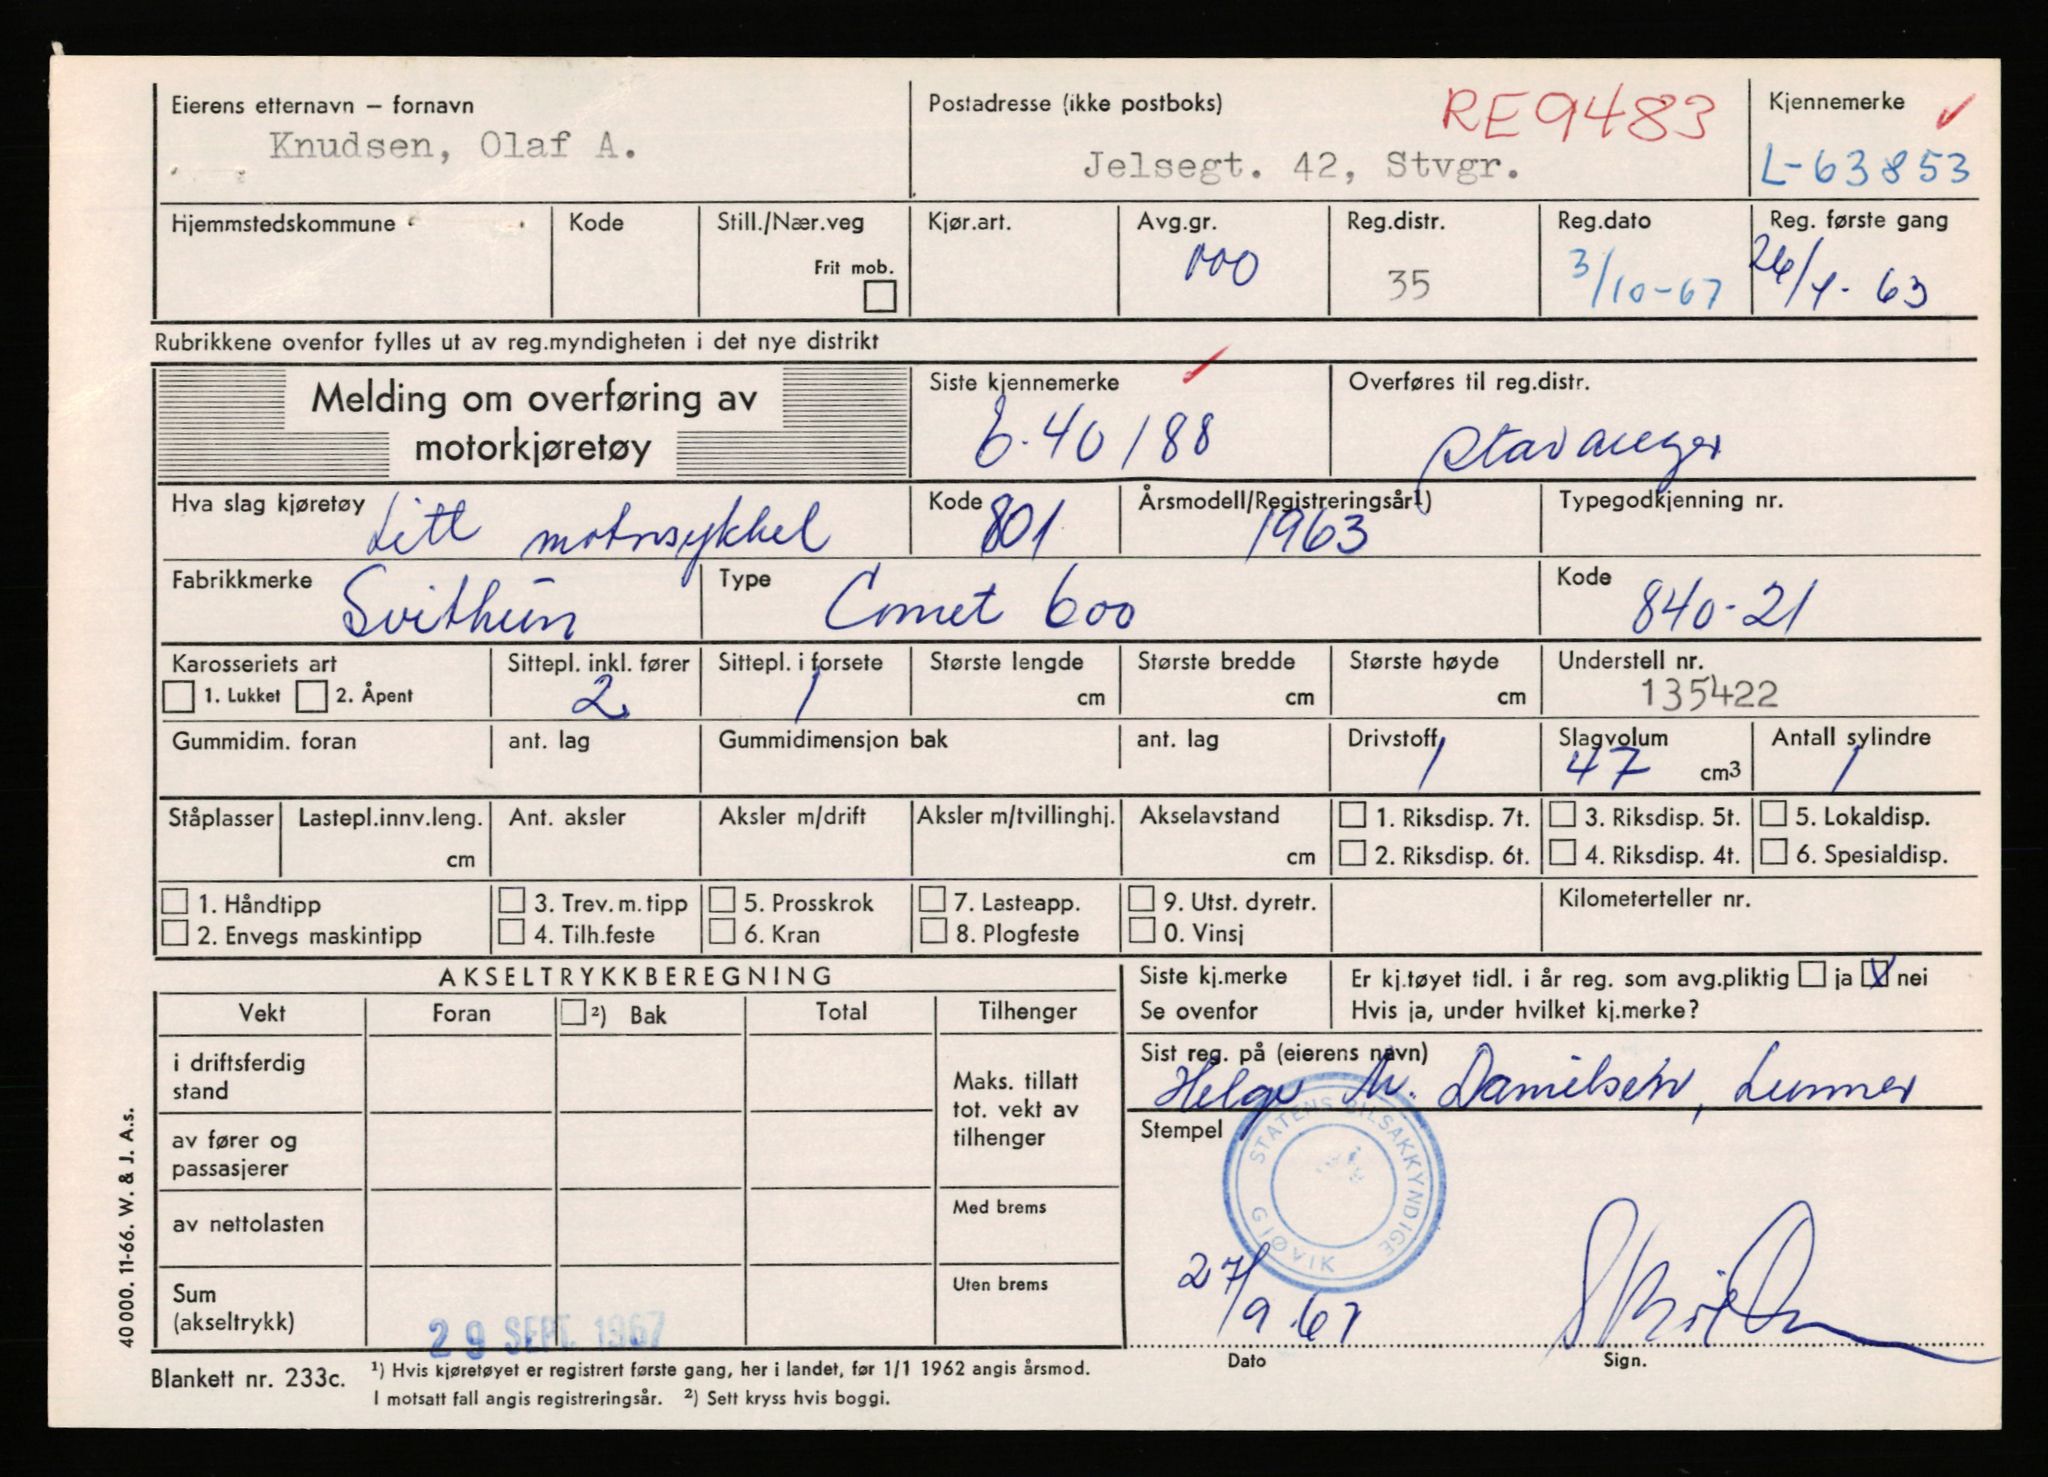 Eierens etternavn – fornavn Postadresse (ikke postboks) RE9483 Kjennemerke
Knudsen, Olaf A. Jelsegt. 42, Stvgr. L-63853
Hjemmstedskommune Kode Still./Nær.veg Kjør.art. Avg.gr. Reg.distr. Reg.dato Reg. første gang
Frit mob. 000 35 3/10-67 26/4-63
Rubrikkene ovenfor fylles ut av reg.myndigheten i det nye distrikt
Melding om overføring av Siste kjennemerke Overføres til reg.distr.
motorkjøretøy E-40188 Stavanger
Hva slag kjøretøy Lett motorsykkel Kode 801 Årsmodell/Registreringsår1) 1963 Typegodkjenning nr.
Fabrikkmerke Svithun Type Comet 600 Kode 840-21
Karosseriets art Sittepl. inkl. fører Sittepl. i forsete Største lengde Største bredde Største høyde Understell nr.
1. Lukket 2. Åpent 2 1 cm cm cm 135422
Gummidim. foran ant. lag Gummidimensjon bak ant. lag Drivstoff Slagvolum Antall sylindre
1 47 cm3 1
Ståplasser Lastepl.innv.leng. Ant. aksler Aksler m/drift Aksler m/tvillinghj. Akselavstand 1. Riksdisp. 7t. 3. Riksdisp. 5t. 5. Lokaldisp.
cm cm 2. Riksdisp. 6t. 4. Riksdisp. 4t. 6. Spesialdisp.
1. Håndtipp 3. Trev. m. tipp 5. Prosskrok 7. Lasteapp. 9. Utst. dyretr. Kilometerteller nr.
2. Envegs maskintipp 4. Tilh.feste 6. Kran 8. Plogfeste 0. Vinsj
AKSELTRYKKBEREGNING Siste kj.merke Er kj.tøyet tidl. i år reg. som avg.pliktig ja X nei
Vekt Foran 2) Bak Total Tilhenger Se ovenfor Hvis ja, under hvilket kj.merke?
i driftsferdig stand Maks. tillatt tot. vekt av tilhenger Sist reg. på (eierens navn)
Helge M. Danielsen, Lunner
av fører og passasjerer Stempel
STATENS BILSAKKYNDIGE GJØVIK
av nettolasten Med brems
Sum (akseltrykk) Uten brems 27/9.67
29 SEPT. 1967
Dato Sign.
Blankett nr. 233c. 1) Hvis kjøretøyet er registrert første gang, her i landet, før 1/1 1962 angis årsmod.
I motsatt fall angis registreringsår. 2) Sett kryss hvis boggi.
40 000. 11-66. W. & J. A.s.